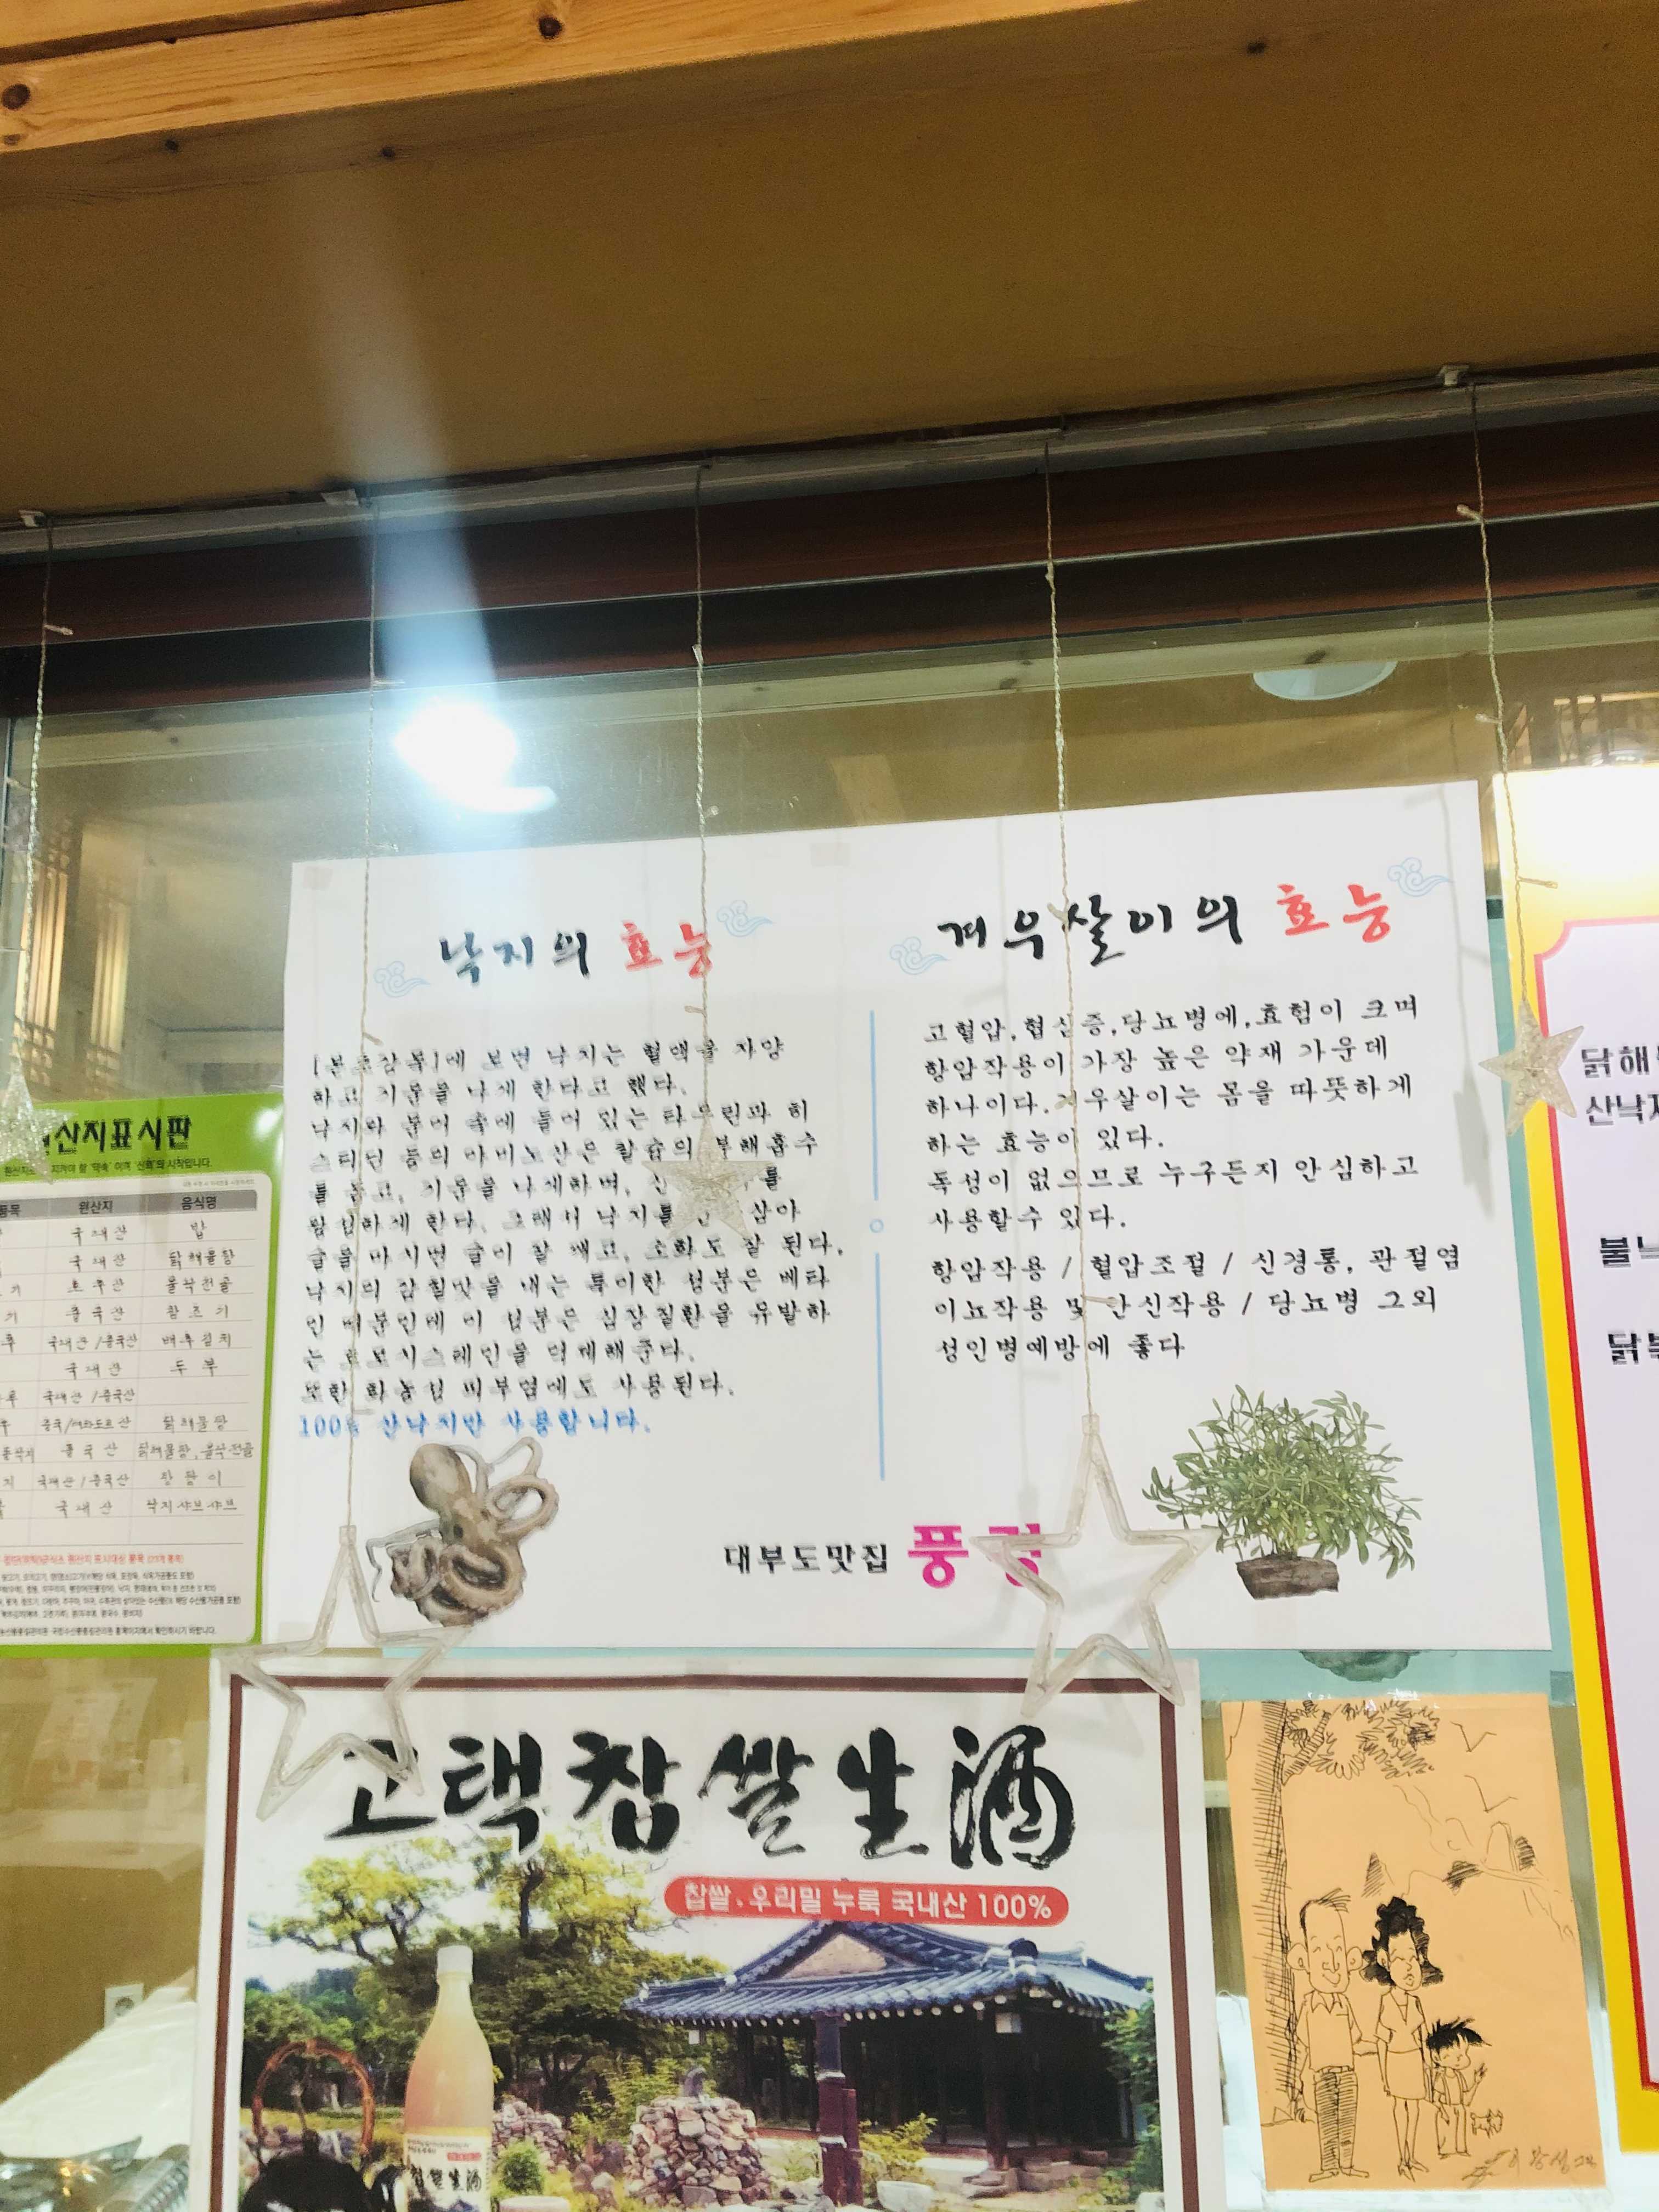 낙지의 효능
[본초강목]에 보면 낙지는 혈액을 자양
하고 기운을 나게 한다고 했다.
낙지와 문어 속에 들어 있는 타우린과 히
스티딘 등의 아미노산은 칼슘의 분해흡수
를 돕고, 기운을 나게하며,
하게 한다. 그래서 낙지를 삼아
술을 마시면 술이 잘 깨고, 소화도 잘 된다.
낙지의 감칠맛을 내는 특이한 성분은 베타
인 때문인데 이 성분은 심장질환을 유발하
는 호모시스테인을 억제해준다.
또한 화농성 피부염에도 사용된다.
100% 산낙지만 사용합니다.
겨우살이의 효능
고혈압,협심증,당뇨병에,효험이 크며
항암작용이 가장 높은 약재 가운데
하나이다.겨우살이는 몸을 따뜻하게
하는 효능이 있다.
독성이 없으므로 누구든지 안심하고
사용할수 있다.
항암작용 / 혈압조절 / 신경통, 관절염
이뇨작용 및 안신작용 / 당뇨병 그외
성인병예방에 좋다
대부도맛집 풍경
원산지표시판
원산지 음식명
국내산 밥
국내산 닭해물탕
호주산 불낙전골
중국산 참조기
국내산/중국산 배추김치
국내산 두부
국내산/중국산
중국/에콰도르산 닭해물탕
중국산 닭해물탕, 불낙전골
국내산/중국산
국내산 낙지샤브샤브
닭해
산낙지
불낙
닭볶
고택찹쌀生酒
찹쌀·우리밀 누룩 국내산 100%
찹쌀生酒